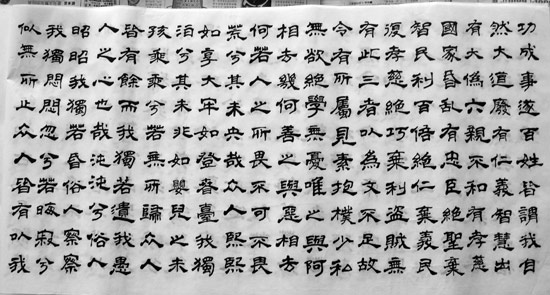 功成事遂百姓皆謂我自
然大道廢有仁義智慧出
有大偽六親不和有孝慈
國家昏亂有忠臣絕聖棄
智民利百倍絕仁棄義民
復孝慈絕巧棄利盜賊無
有此三者以為文不足故
令有所屬見素抱樸少私
無欲絕學無憂唯之與阿
相去幾何善之與惡相去
何若人之所畏不可不畏
荒兮其未央哉衆人熙熙
如享大牢如登春臺我獨
泊兮其未兆如嬰兒之未
孩乘乘兮若無所歸衆人
皆有餘而我獨若遺我愚
人之心也哉沌沌兮俗人
昭昭我獨若昏俗人察察
我獨悶悶忽兮若晦寂兮
似無所止衆人皆有以我